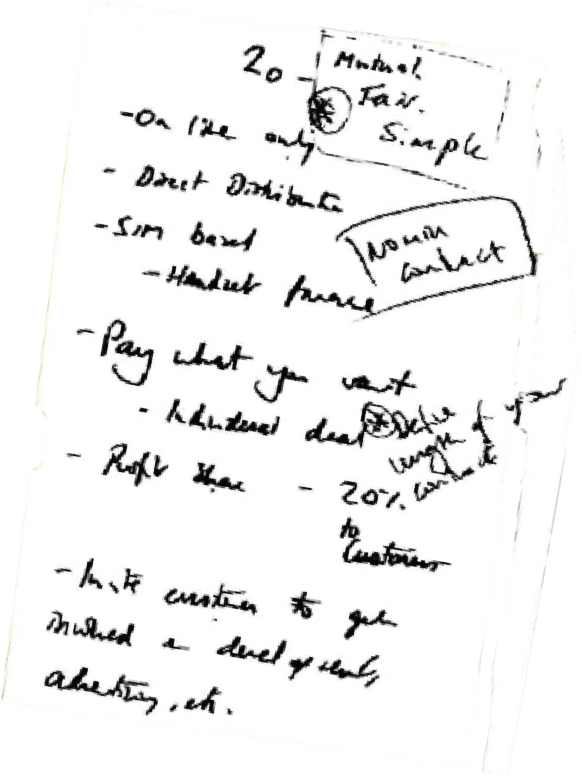 20 -
Mutual.
Fair.
Simple
- On line only
- Direct Distribution
- SIM based
- Handset finance
No min
contract
- Pay what you want
- Individual deal
* Define
length of your
contract
- Profit Share - 20%
to
Customers
- Invite customers to get
involved in development,
advertising, etc.